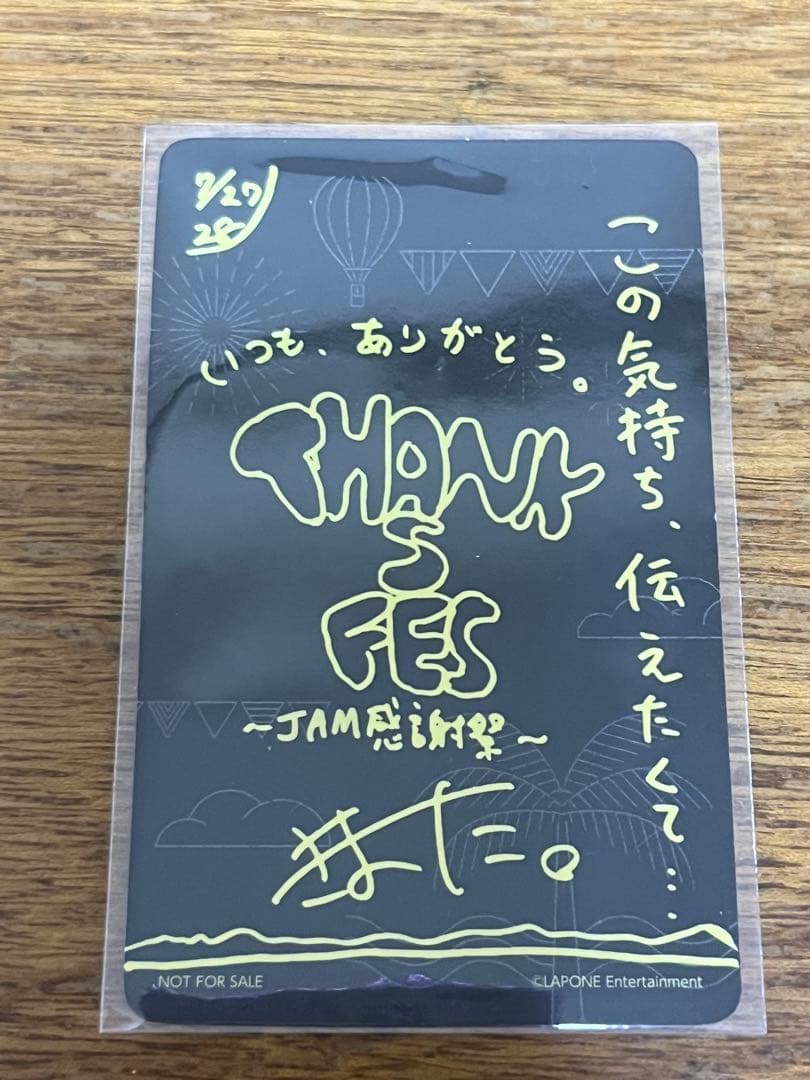 7/27
28
この気持ち、伝えたくて…
いつも、ありがとう。
THANK
S
FES
~JAM感謝祭~
NOT FOR SALE
©LAPONE Entertainment